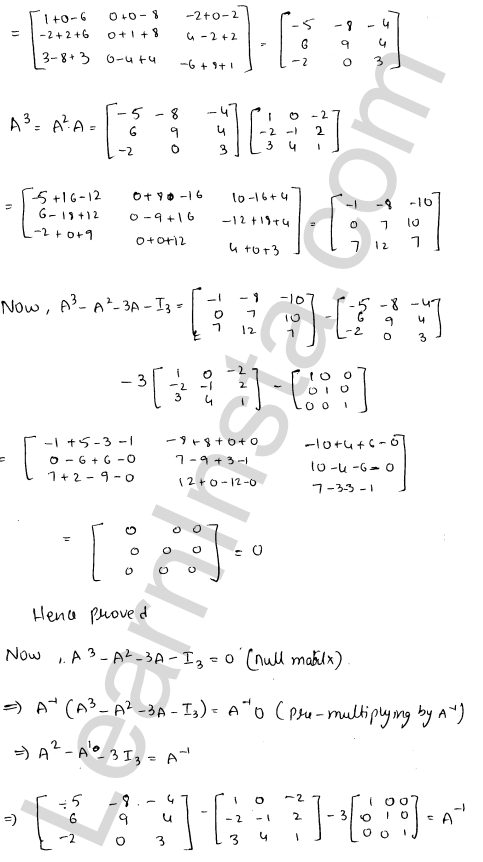 = [ 1+0-6 0+0-8 -2+0-2
-2+2+6 0+1+8 4-2+2
3-8+3 0-4+4 -6+8+1 ] = [ -5 -8 -4
6 9 4
-2 0 3 ]
A³ = A²·A = [ -5 -8 -4
6 9 4
-2 0 3 ] [ 1 0 -2
-2 -1 2
3 4 1 ]
= [ -5+16-12 0+8-16 10-16+4
6-18+12 0-9+16 -12+18+4
-2+0+9 0+0+12 4+0+3 ] = [ -1 -8 -10
0 7 10
7 12 7 ]
Now, A³-A²-3A-I₃ = [ -1 -8 -10
0 7 10
7 12 7 ] - [ -5 -8 -4
6 9 4
-2 0 3 ]
-3 [ 1 0 -2
-2 -1 2
3 4 1 ] - [ 1 0 0
0 1 0
0 0 1 ]
= [ -1+5-3-1 -8+8+0+0 -10+4+6-0
0-6+6-0 7-9+3-1 10-4-6=0
7+2-9-0 12+0-12-0 7-3-3-1 ]
= [ 0 0 0
0 0 0
0 0 0 ] = 0
Hence proved
Now, A³-A²-3A-I₃ = 0 (null matrix)
⇒ A⁻¹ (A³-A²-3A-I₃) = A⁻¹0 (pre-multiplying by A⁻¹)
⇒ A²-A-3I₃ = A⁻¹
⇒ [ -5 -8 -4
6 9 4
-2 0 3 ] - [ 1 0 -2
-2 -1 2
3 4 1 ] -3 [ 1 0 0
0 1 0
0 0 1 ] = A⁻¹
LearnInsta.com